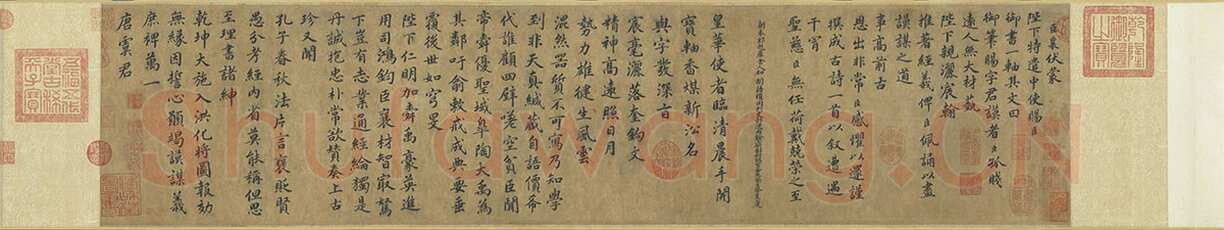 臣襄伏蒙
陛下特遣中使賜臣
御書一軸其文曰
御筆賜字君謨者臣孤賤
遠人無大材藝
陛下親灑宸翰
推著經義俾臣佩誦以盡
謨謀之道
事高前古
恩出非常臣感懼以還謹
撰成古詩一首以叙遭遇
干冒
聖慈臣無任荷戴兢榮之至
皇華使者臨清晨手開
寶軸香煤新沁名
與字發深旨
宸毫灑落奎鈎文
精神高遠照日月
勢力雄健生風雲
混然器質不可寫乃知學
到非天真緘藏自語價希
代誰顧四壁嗟空貧臣聞
帝舜優聖域皋陶大禹為
其鄰吁俞敕戒成典要垂
覆後世如穹旻
陛下仁明加舜禹豪英進
用司鴻鈞臣襄材智最駑
下豈有志業通經綸獨是
丹誠抱忠朴常欲贊奏上古
珍又聞
孔子春秋法片言褒貶賢
愚分考經內省莫能稱但思
至理書諸紳
乾坤大施入洪化將圖報効
無緣因誓心願竭謨謀義
庶裨萬一
唐虞君
乾隆御覽之寶
Shufawang.CN